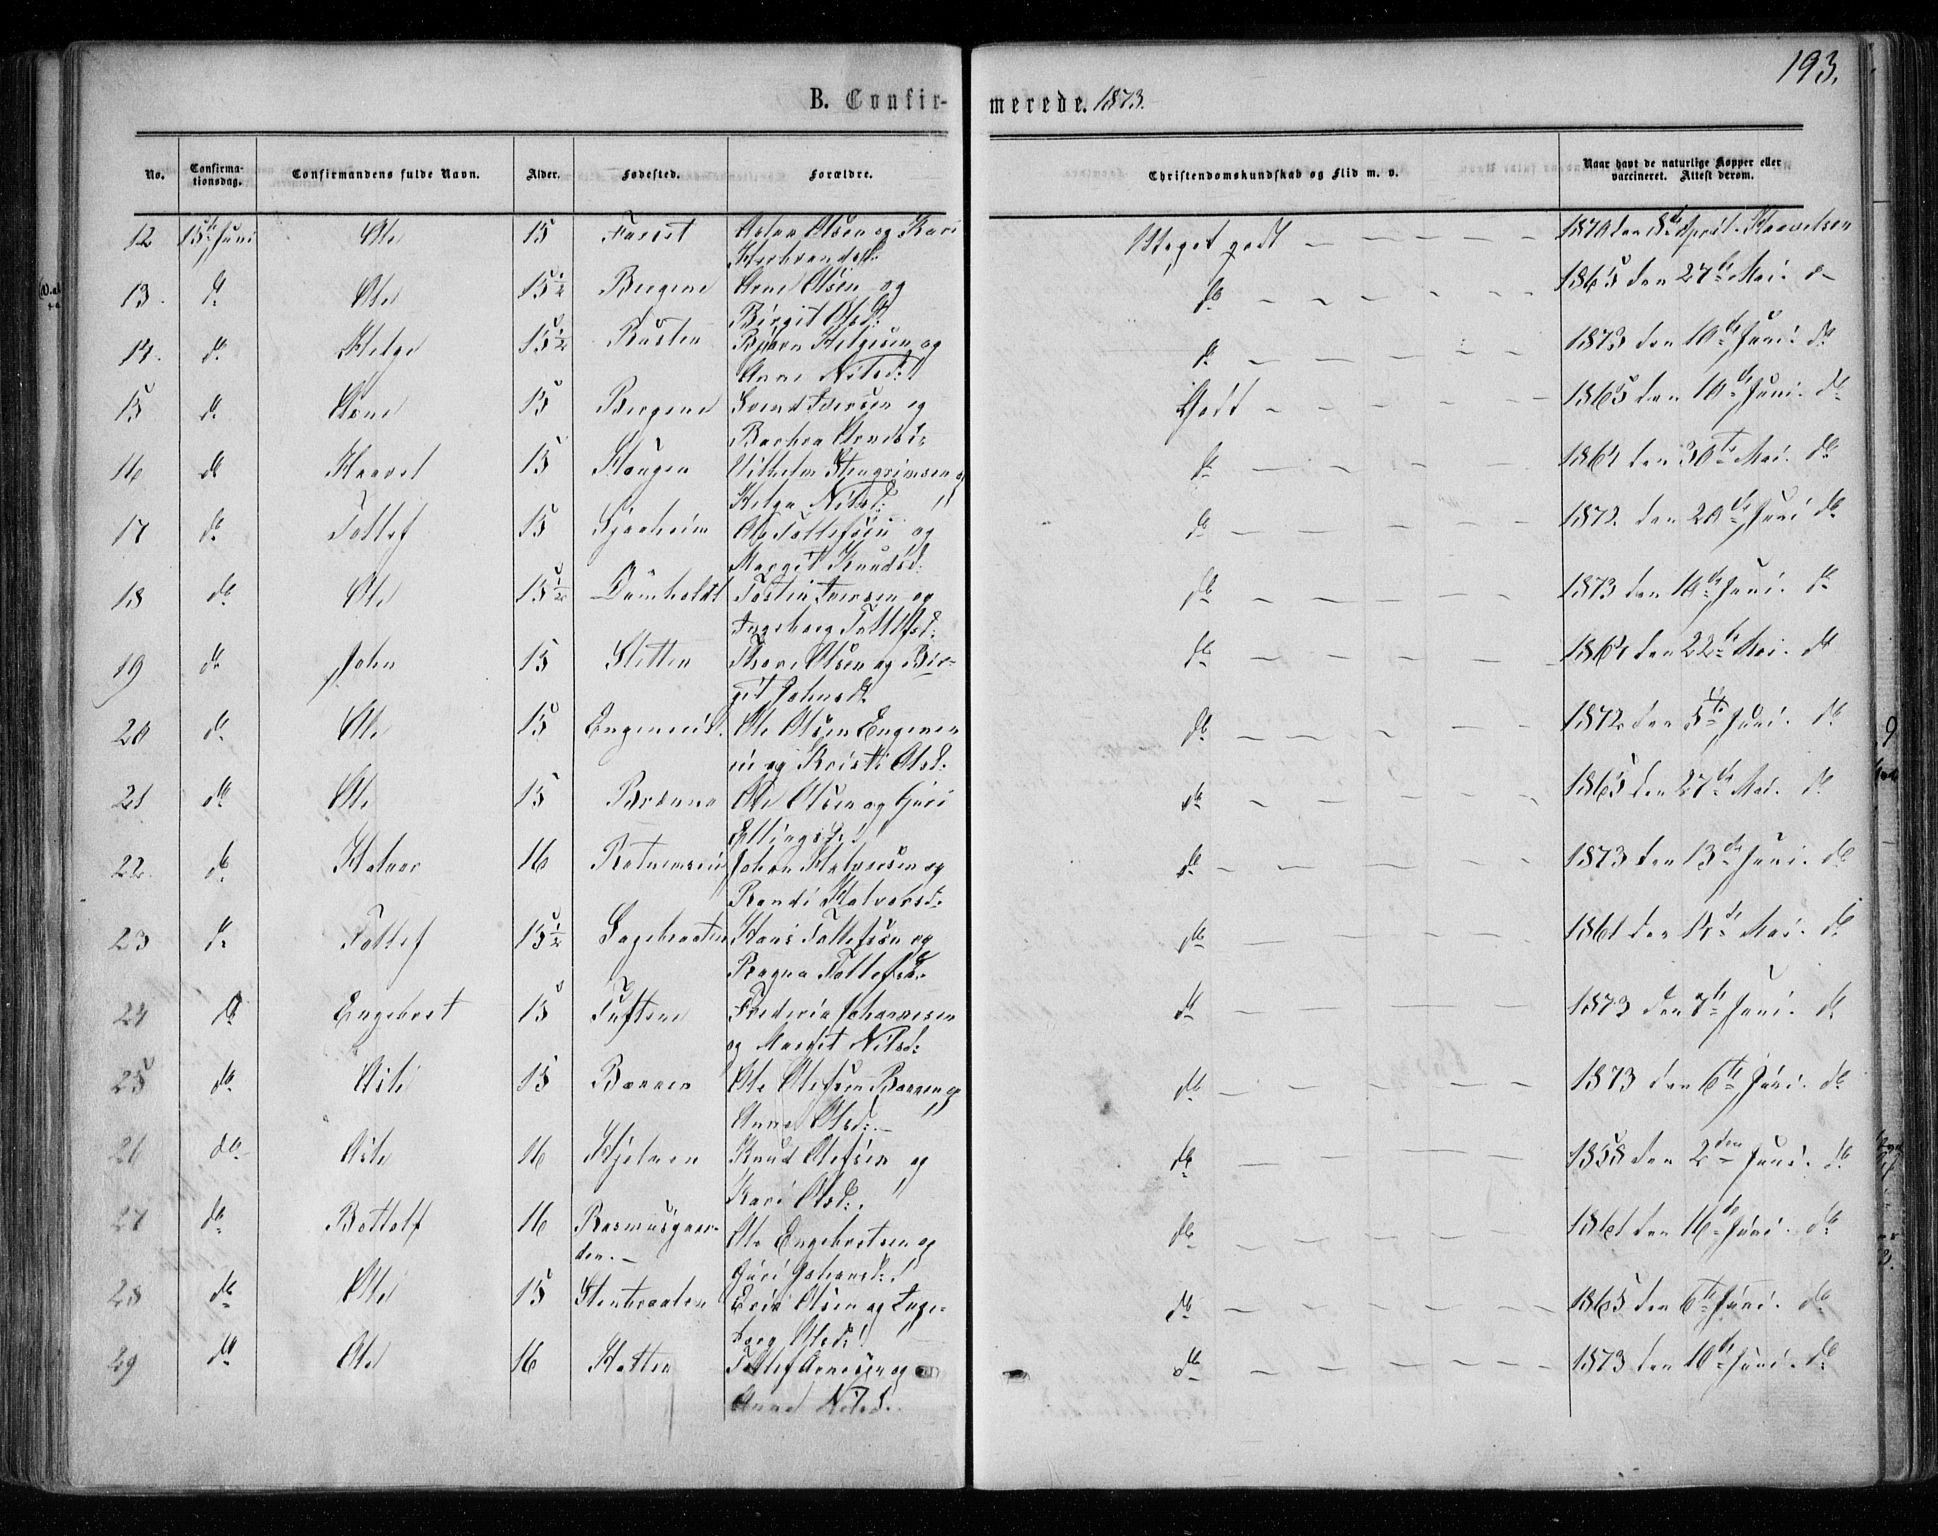 193.
B. Confirmerede. 1873.
No. Confirmationsdag. Confirmandens fulde Navn. Alder. Fødested. Forældre. Christendomskundskab og Flid m. v. Naar havt de naturlige Kopper eller vaccineret. Attest derom.
12 15de Juni Ole 15 Olsen og Kari Meget godt 1870 den 8de April
Herbrandsd:
13. do Ole 15 1/2 Bergene Arne Olsen og do 1865 den 27de Mai. do
Birgit Olsd:
14. do Helge 15 1/2 Rusten Bjørn Helgesen og do 1873 den 10de Juni. do
Anne Nilsd:
15 do Arne 15 Bergene Svend Iversen og Godt 1865 den 10de Juni. do
Barbra Arnesd:
16 do Haavel 15 Haugen Vilhelm Stengrimsen og do 1864 den 30te Mai. do
Helga Nilsd:
17 do Tollef 15 Gjerheim Ole Tollefsen og do 1872. den 20de Juni do
Margit Knudsd:
18 do Ole 15 1/2 Dømholdt Tostein Iversen og do 1873 den 10de Juni. do
Ingeborg Tollefsd:
19 do John 15 Sletten Thore Olsen og Bir- do 1864 den 22de Mai. do
git Johnsd:
20 do Ole 15 Ole Olsen do 1872 den 5te Juni. do
og Kristi Olsd:
21 do Ole 15 Brenna Ole Olsen og Guri do 1865 den 27de Mai. do
Ellingsd:
22. do Halvor 16 Johan Halvorsen og do 1873 den 13de Juni. do
Randi Halvorsd:
23 do Tollef 15 1/2 Sagebraaten Hans Tollefsen og do 1861 den 14de Mai. do
Ragna Tollefsd:
24 do Engebret 15 Tuftene Frederik Johannesen do 1873 den 7de Juni. do
og Margit Nilsd:
25 do Asle 15 Ole Olefsen og do 1873 den 6te Juni. do
Anne Olsd:
26 do Asle 16 Knud Olefsen og do 1858 den 2den Juni. do
Kari Olsd:
27 do Bottolf 16 Rasmusgaar- Ole Engebretsen og do 1861 den 16de Juni. do
den. Guri Johansd:
28 do Ole 15 Stenbraaten Erik Olsen og Inge- do 1865 den 6te Juni. do
borg Olsd:
29 do Ole 16 Tollef Arnesen og do 1873 den 10de Juni. do
Anne Nilsd: